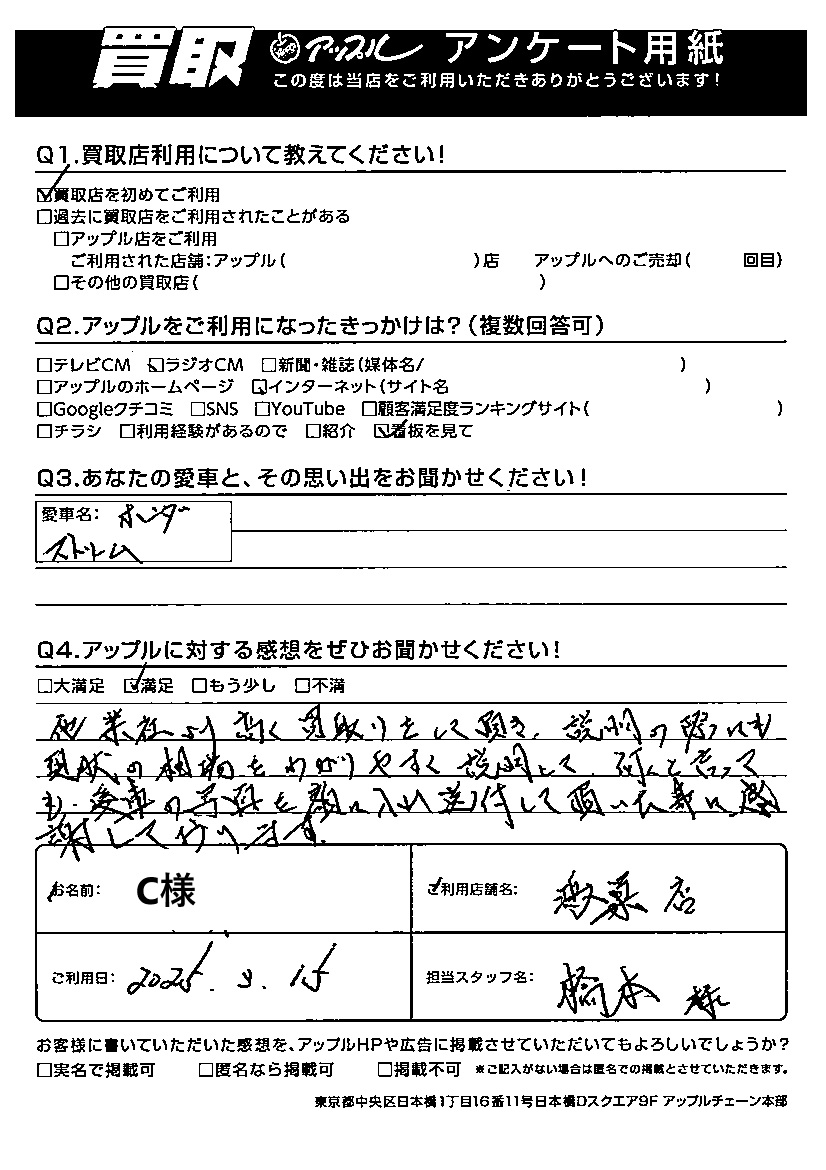 買取 アップル アンケート用紙
この度は当店をご利用いただきありがとうございます!
Q1.買取店利用について教えてください!
☑買取店を初めてご利用
□過去に買取店をご利用されたことがある
□アップル店をご利用
ご利用された店舗:アップル( )店 アップルへのご売却( 回目)
□その他の買取店( )
Q2.アップルをご利用になったきっかけは?(複数回答可)
□テレビCM ☑ラジオCM □新聞・雑誌(媒体名/ )
□アップルのホームページ ☑インターネット(サイト名 )
□Googleクチコミ □SNS □YouTube □顧客満足度ランキングサイト( )
□チラシ □利用経験があるので □紹介 ☑看板を見て
Q3.あなたの愛車と、その思い出をお聞かせください!
愛車名: ホンダ
ストリーム
Q4.アップルに対する感想をぜひお聞かせください!
□大満足 ☑満足 □もう少し □不満
他業社より高く買取りをして頂き、説明の際にも
現状の相場をわかりやすく説明して 何と言って
も、愛車の写真を 入れ送付して頂いた事に感
謝しております。
お名前: C様 ご利用店舗名: 店
ご利用日: 2025.3.15 担当スタッフ名: 橋本 様
お客様に書いていただいた感想を、アップルHPや広告に掲載させていただいてもよろしいでしょうか?
□実名で掲載可 □匿名なら掲載可 □掲載不可 ※ご記入がない場合は匿名での掲載とさせていただきます。
東京都中央区日本橋1丁目16番11号日本橋Dスクエア9F アップルチェーン本部